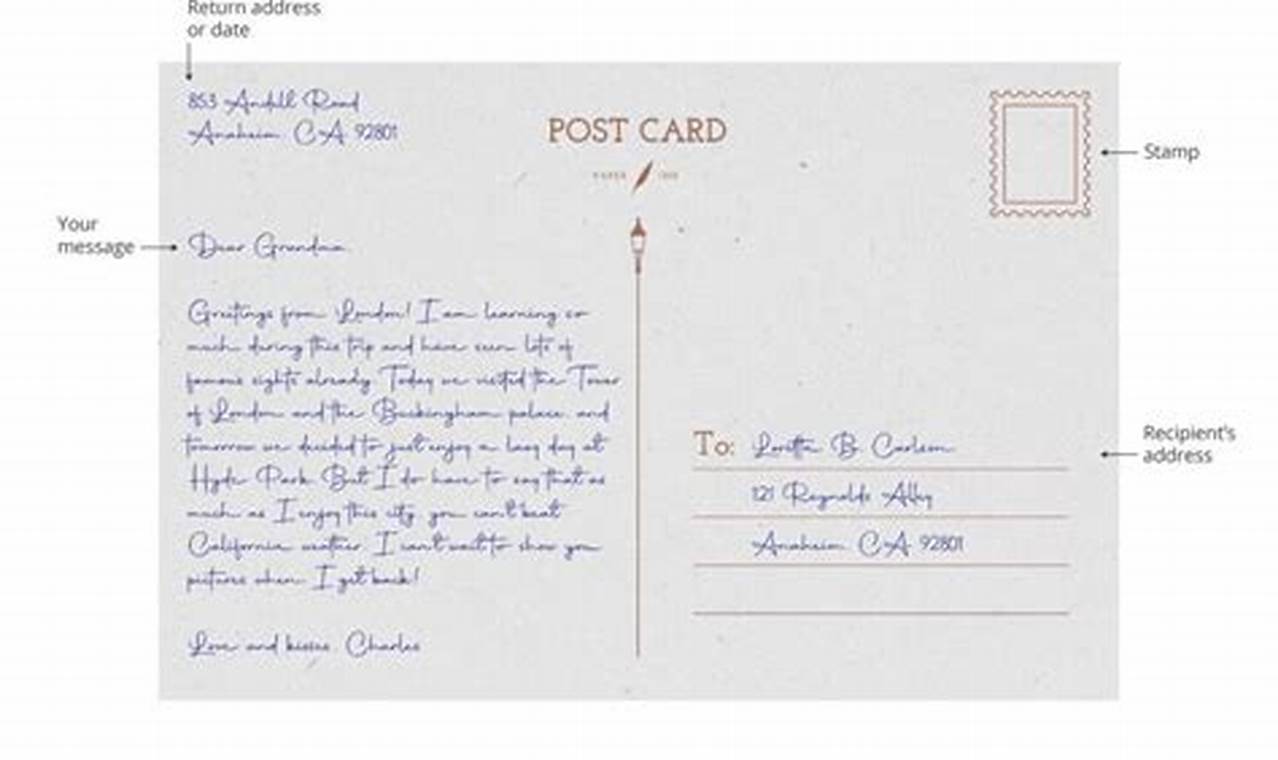 Return address
or date
853 Andill Road
Anaheim CA 92801
POST CARD
Stamp
Your
message
Dear Grandma
Greetings from London! I am learning so
much during this trip and have seen lots of
famous sights already. Today we visited the Tower
of London and the Buckingham palace and
tomorrow we decided to just enjoy a lazy day at
Hyde Park. But I do have to say that as
much as I enjoy this city you can't beat
California weather. I can't wait to show you
pictures when I get back!
Love and kisses Charles
To: Loretta B. Carlson
121 Reynolds Alley
Anaheim CA 92801
Recipient's
address